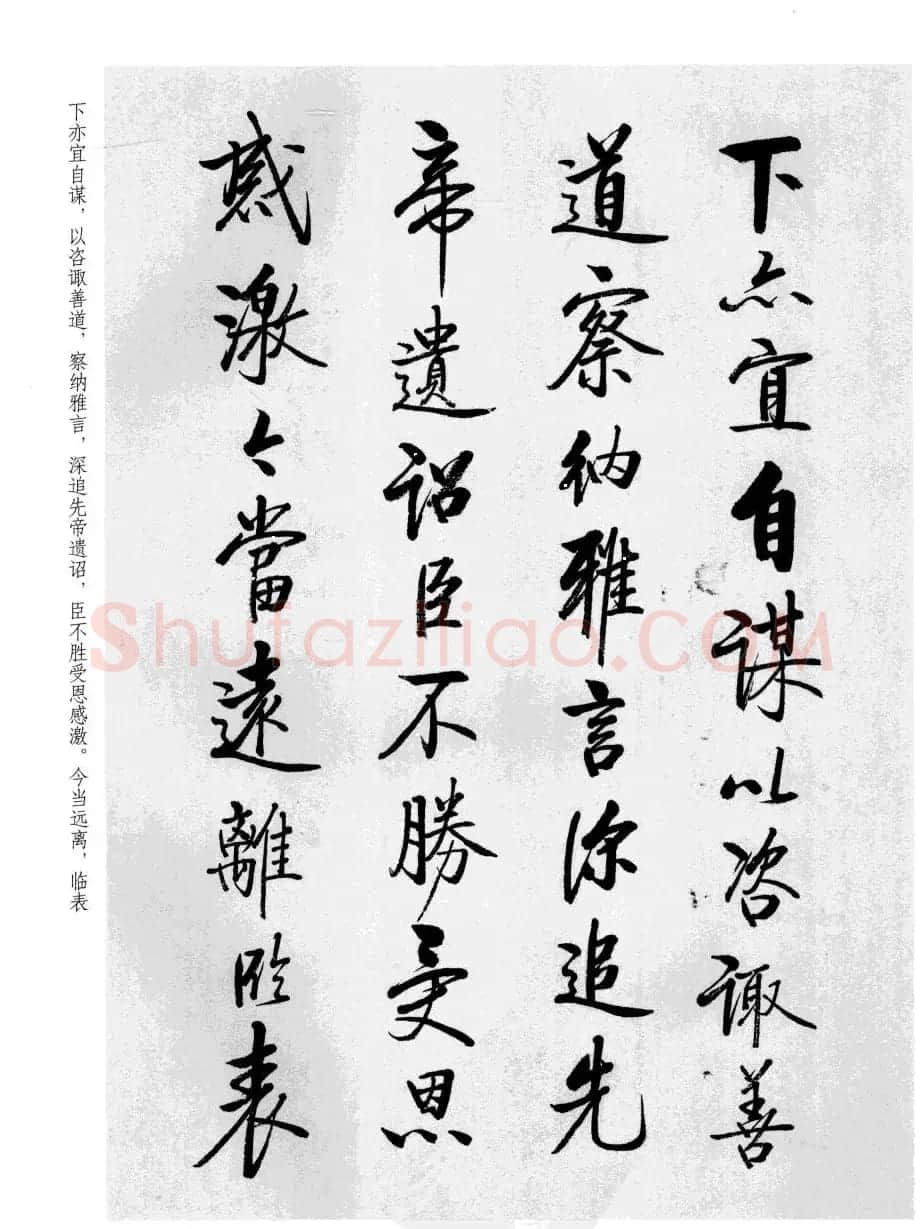 下亦宜自謀以咨諏善
道察納雅言深追先
帝遺詔臣不勝受恩
感激今當遠離臨表
下亦宜自谋，以咨诹善道，察纳雅言，深追先帝遗诏，臣不胜受恩感激。今当远离，临表
Shufaziliao.COM